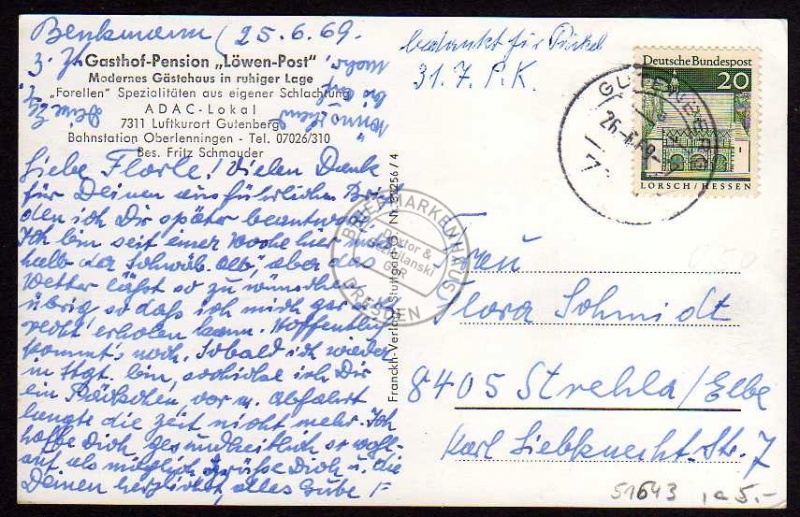 Benkmann (25.6.69.
Gasthof-Pension „Löwen-Post"
Modernes Gästehaus in ruhiger Lage
„Forellen" Spezialitäten aus eigener Schlachtung
ADAC-Lokal
7311 Luftkurort Gutenberg
Bahnstation Oberlenningen - Tel. 07026/310
Bes. Fritz Schmauder
Liebe Florle! Vielen Dank
für Deinen ausführlichen
den ich Dir später
Ich bin seit einer Woche hier
halb der Schwäb. Alb", aber das
Wetter läßt so zu wünschen
übrig, so daß ich mich gar
recht erholen kann. Hoffentlich
kommt's noch. Sobald ich wieder
in Stgt. bin, schicke ich Dir
ein Päckchen vor m. Abfahrt
langte die Zeit nicht mehr. Ich
hoffe Dich, gesundheitlich so wohl-
auf als möglich. Grüße Dich u. die
Deinen herzlichst, alles Gute
Franckh-Verlag Stuttgart
256/4
bedankt für Päckel
31.7. P.K.
Deutsche Bundespost
20
LORSCH/HESSEN
26.-6.69.-
7
BRIEFMARKENHAUS
Dixtor &
GbR
DRESDEN
Frau
Flora Schmidt
8405 Strehla/Elbe
Karl Liebknecht. Str. 7
51643
5.-